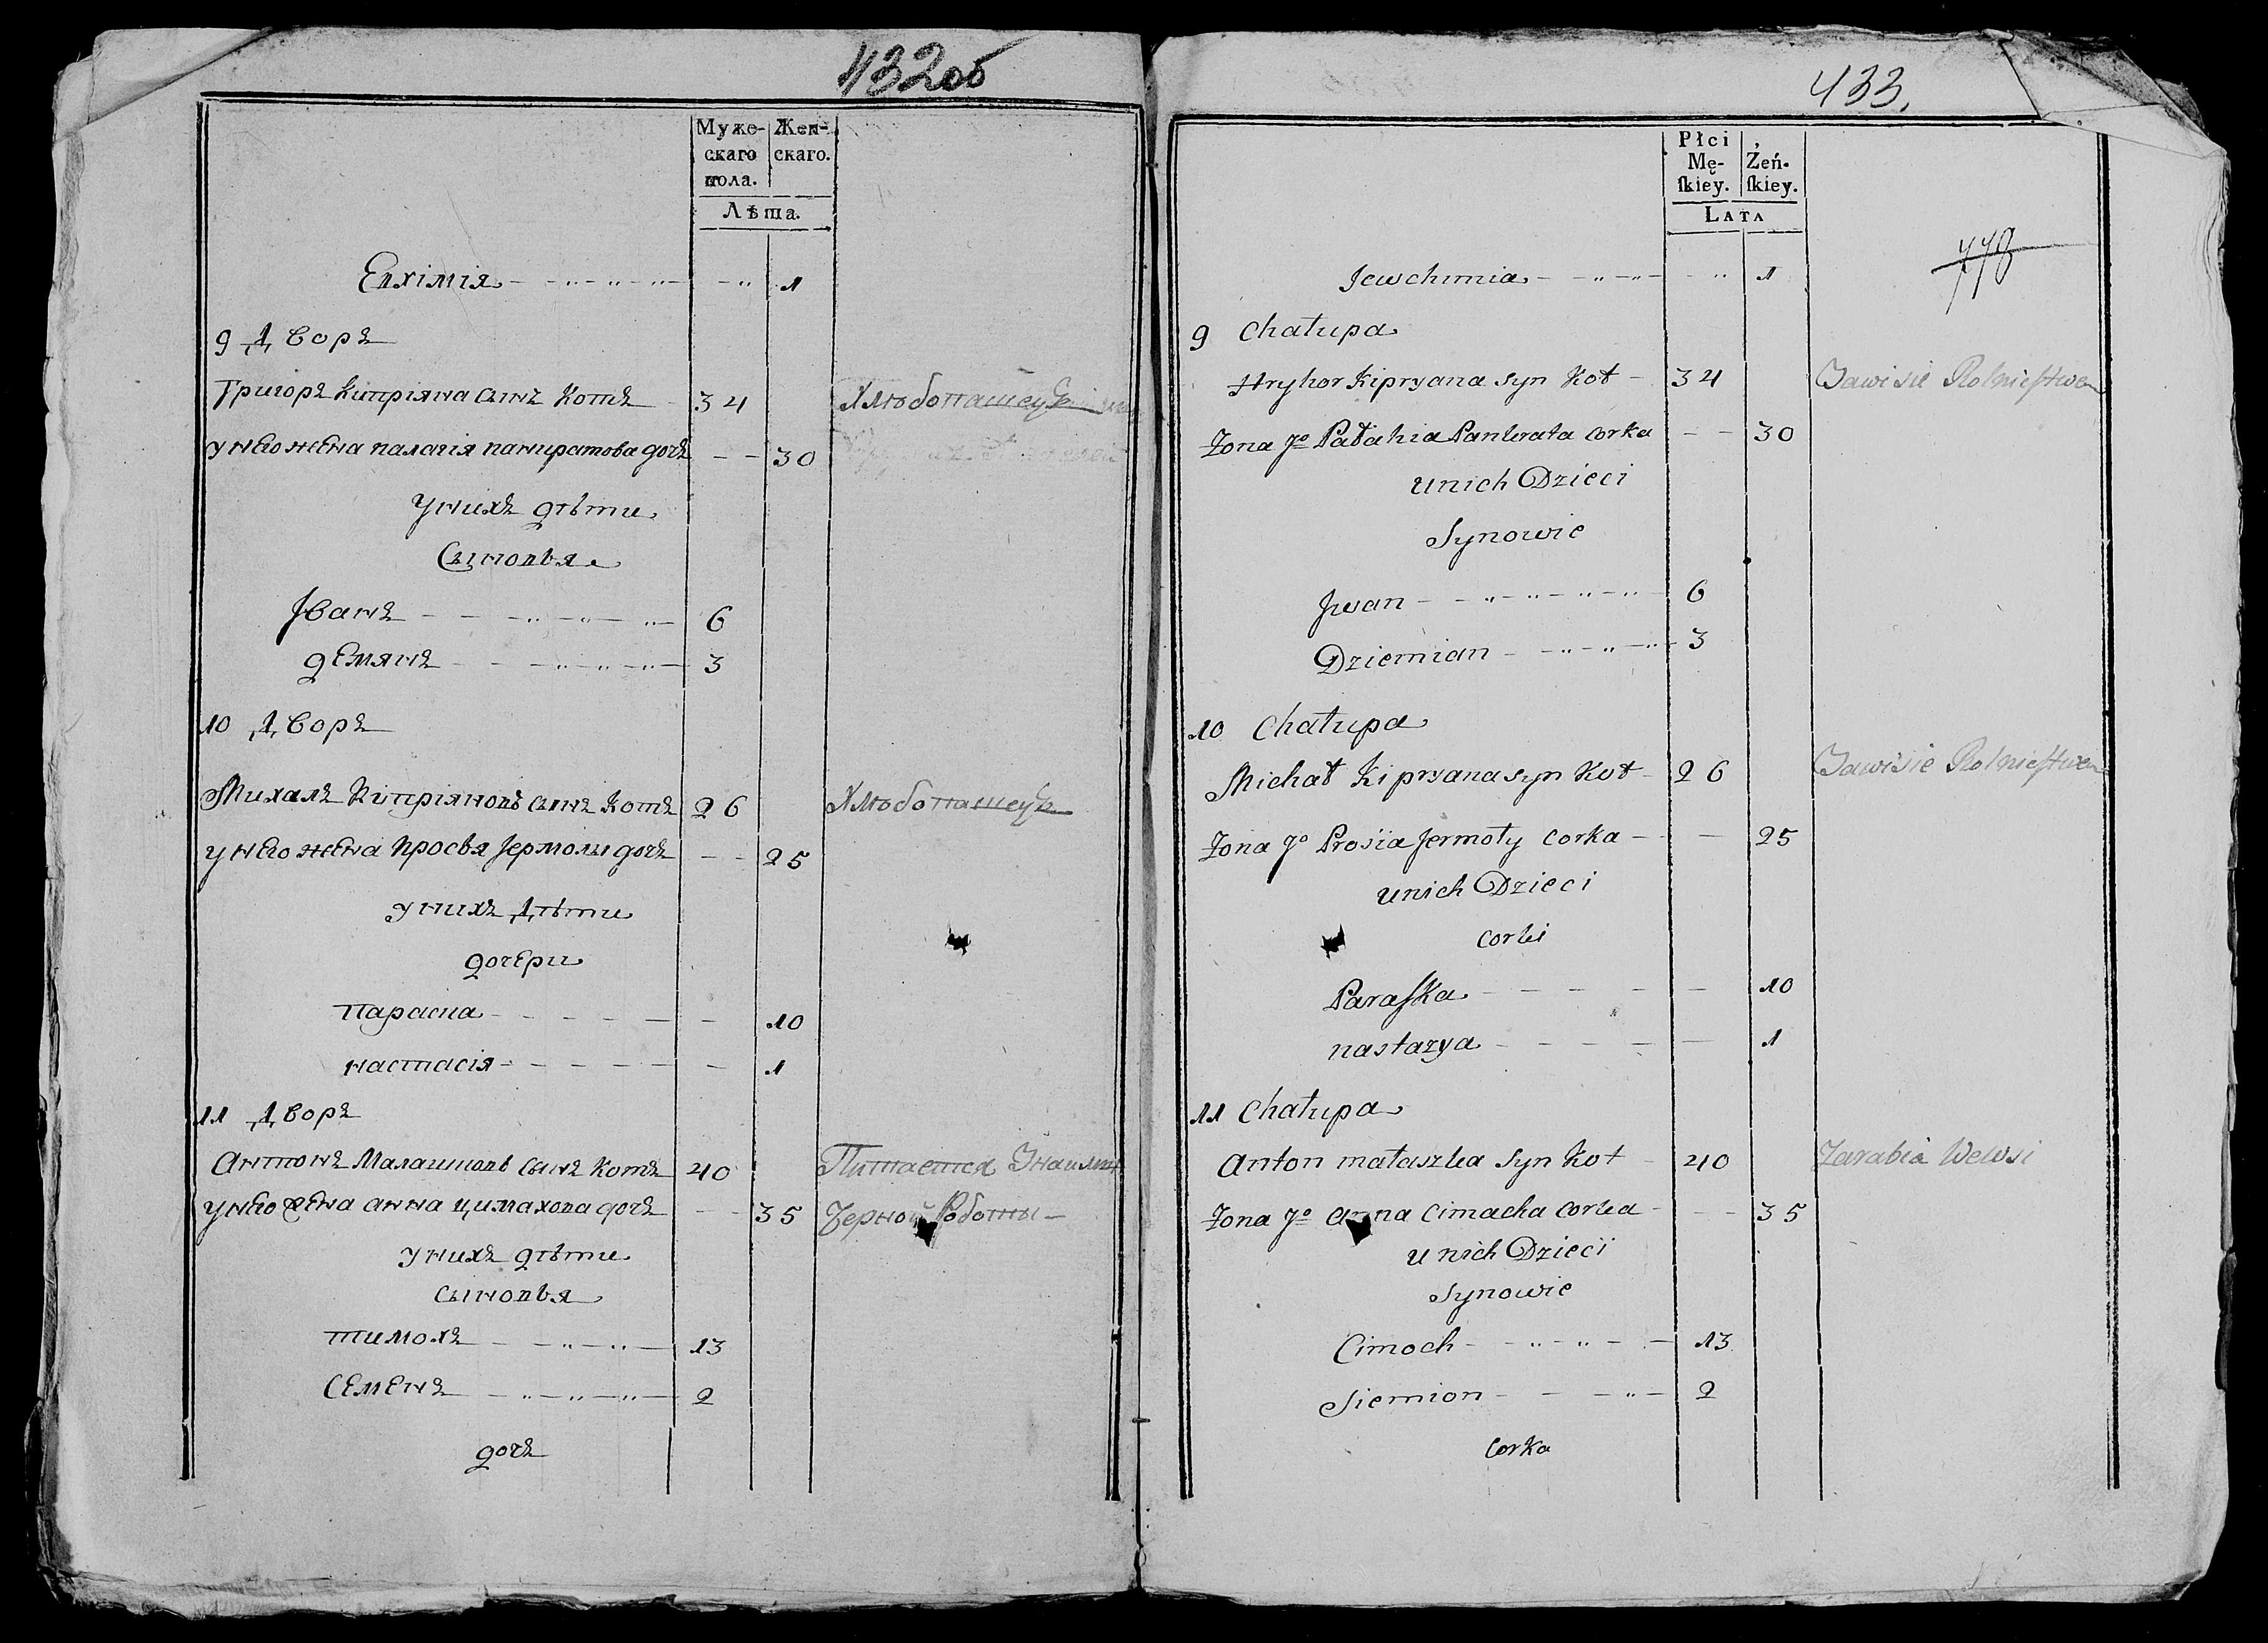 432об
Муже-
скаго
пола.
Жен-
скаго.
Лѣта.
Евхімія 1
9 Дворъ
Григоръ Кипріяна сынъ Котъ 34 Хлѣбопашецъ
у него жена палагія панкратова дочъ 30
у нихъ дѣти
Сыновья
Іванъ 6
демянъ 3
10 Дворъ
Михалъ Кипріяновъ сынъ Котъ 26 Хлѣбопашецъ
у него жена Просвя Јермолы дочъ 25
у нихъ Дѣти
дочери
параска 10
настасія 1
11 Дворъ
Антонъ Малашковъ сынъ Котъ 40 Питается
у него жена анна цимахова дочъ 35 Черной Роботы
у нихъ дѣти
сыновья
тимохъ 13
семенъ 2
дочъ
433.
Płci
Mę-
ſkiey.
Żeń-
ſkiey.
LATA
778
Jewchimia 1
9 Chałupa
Hryhor Kipryana syn Kot 34 Bawi sie Rolnictwem
Żona Jo Pałahia Pankrata corka 30
u nich Dzieci
Synowie
Jwan 6
Dziemian 3
10 Chałupa
Michał Kipryana syn Kot 26 Bawi sie Rolnictwem
Żona Jo Prosia Jermoły corka 25
u nich Dzieci
corki
Paraſka 10
nastazya 1
11 Chałupa
Anton małaszka syn Kot 40 Zarabia We wsi
Żona Jo anna Cimacha corka 35
u nich Dzieci
Synowie
Cimoch 13
Siemion 2
corka